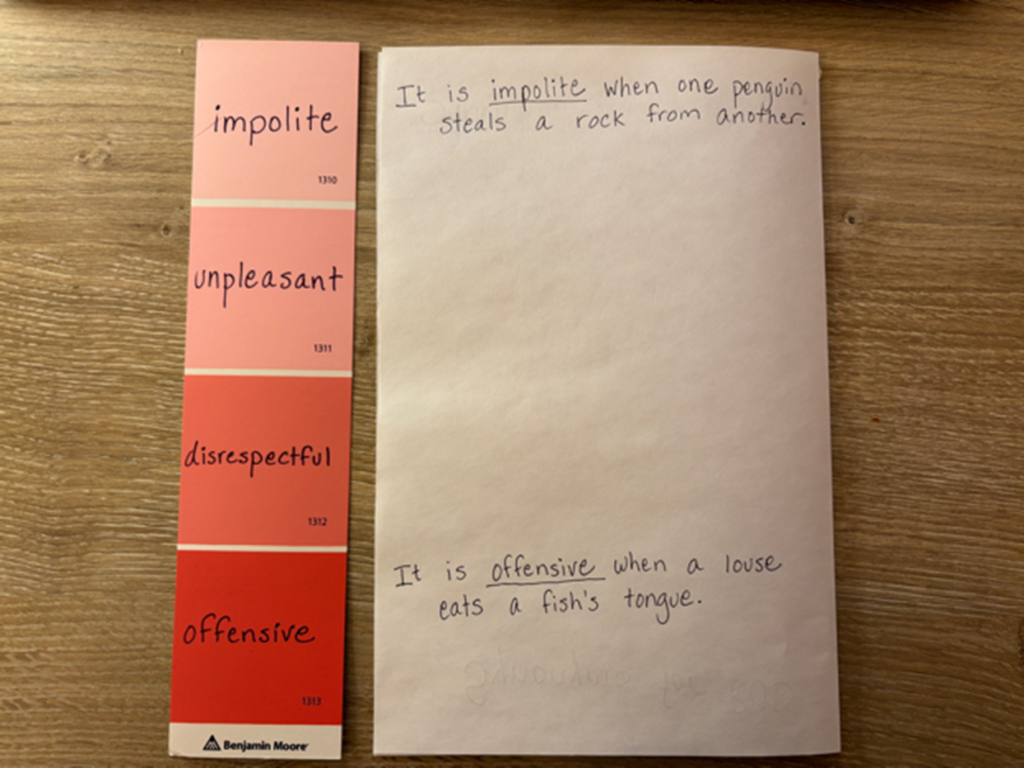 impolite
1310
unpleasant
1311
disrespectful
1312
offensive
1313
Benjamin Moore
It is impolite when one penguin
steals a rock from another.
It is offensive when a louse
eats a fish's tongue.